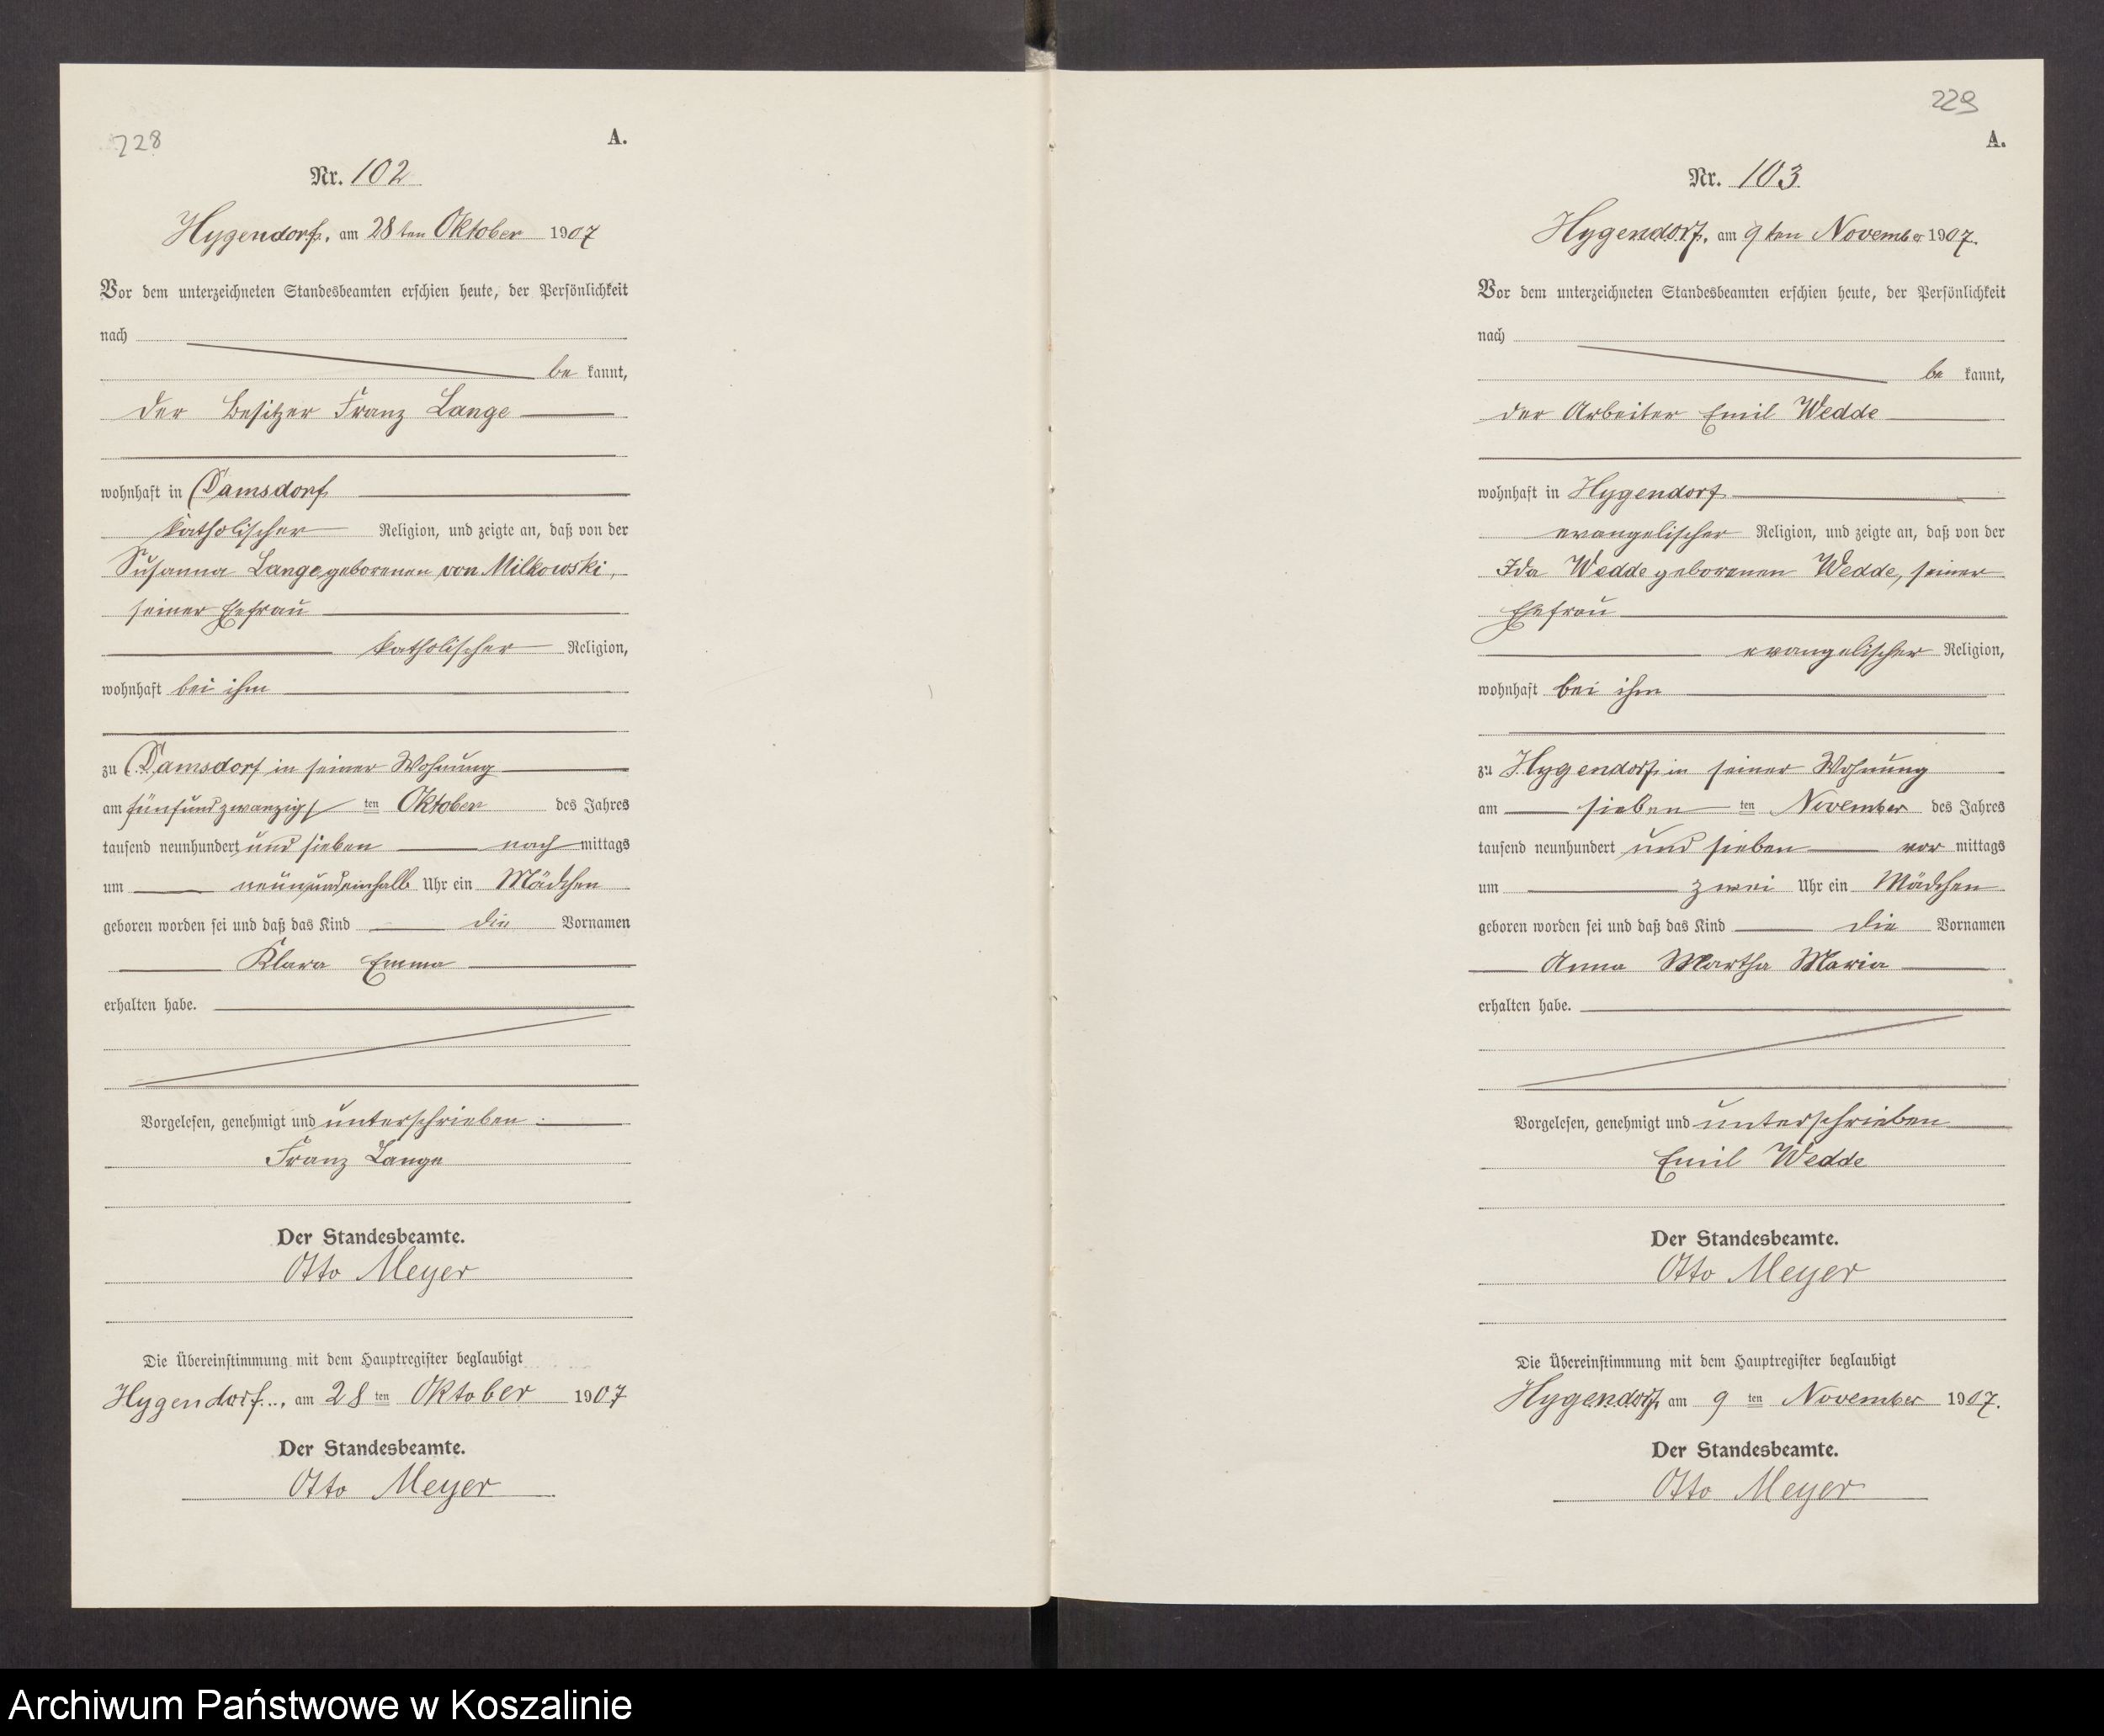 228
A.
Nr. 102
Hygendorf, am 28ten Oktober 1907
Vor dem unterzeichneten Standesbeamten erschien heute, der Persönlichkeit
nach
be kannt,
der Besitzer Franz Lange
wohnhaft in Damsdorf
katholischer Religion, und zeigte an, daß von der
Susanna Lange geborenen von Milkowski,
seiner Ehefrau
katholischer Religion,
wohnhaft bei ihm
zu Damsdorf in seiner Wohnung
am fünfundzwanzigs ten Oktober des Jahres
tausend neunhundert und sieben nach mittags
um neunundeinhalb Uhr ein Mädchen
geboren worden sei und daß das Kind die Vornamen
Klara Emma
erhalten habe.
Vorgelesen, genehmigt und unterschrieben
Franz Lange
Der Standesbeamte.
Otto Meyer
Die Übereinstimmung mit dem Hauptregister beglaubigt
Hygendorf, am 28 ten Oktober 1907
Der Standesbeamte.
Otto Meyer
229
A.
Nr. 103
Hygendorf, am 9ten November 1907.
Vor dem unterzeichneten Standesbeamten erschien heute, der Persönlichkeit
nach
be kannt,
der Arbeiter Emil Wedde
wohnhaft in Hygendorf
evangelischer Religion, und zeigte an, daß von der
Ida Wedde geborenen Wedde, seiner
Ehefrau
evangelischer Religion,
wohnhaft bei ihm
zu Hygendorf in seiner Wohnung
am sieben ten November des Jahres
tausend neunhundert und sieben vor mittags
um zwei Uhr ein Mädchen
geboren worden sei und daß das Kind die Vornamen
Anna Martha Maria
erhalten habe.
Vorgelesen, genehmigt und unterschrieben
Emil Wedde
Der Standesbeamte.
Otto Meyer
Die Übereinstimmung mit dem Hauptregister beglaubigt
Hygendorf, am 9 ten November 1907.
Der Standesbeamte.
Otto Meyer
Archiwum Państwowe w Koszalinie